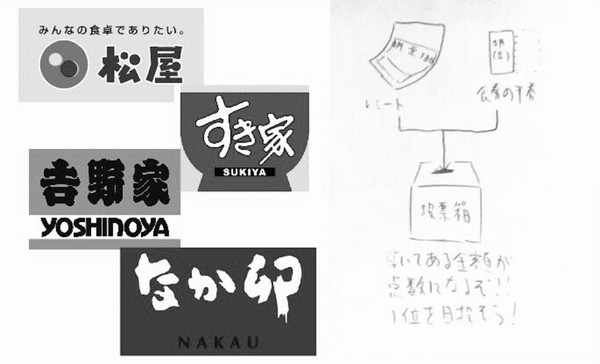 みんなの食卓でありたい。
松屋
すき家
SUKIYA
吉野家
YOSHINOYA
なか卯
NAKAU
レシート
食券の半券
投票箱
書いてある金額が
点数になるぞ!!
1位を目指そう!